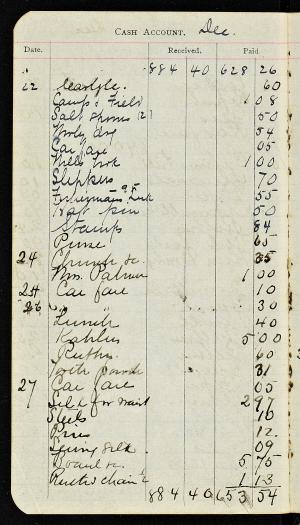 CASH ACCOUNT. Dec.
Date. Received. Paid.
884 40 628 26
22 60
Camp & Field 1 08
Salt 50
54
Car fare 05
1 00
Slippers 70
Fisherman's Luck 55
pin 50
Stamps 84
Purse 65
24 Church &c. 35
Mrs. Palmer 1 00
24 Car fare 10
26 " " 30
Lunch 40
Kahler 5 00
Ruth 60
Tooth powder 31
27 Car fare 05
Silk for waist 2 97
Steels 10
Pins 12
Sewing silk 09
Board &c. 5 75
chair 1 13
884 40 653 54